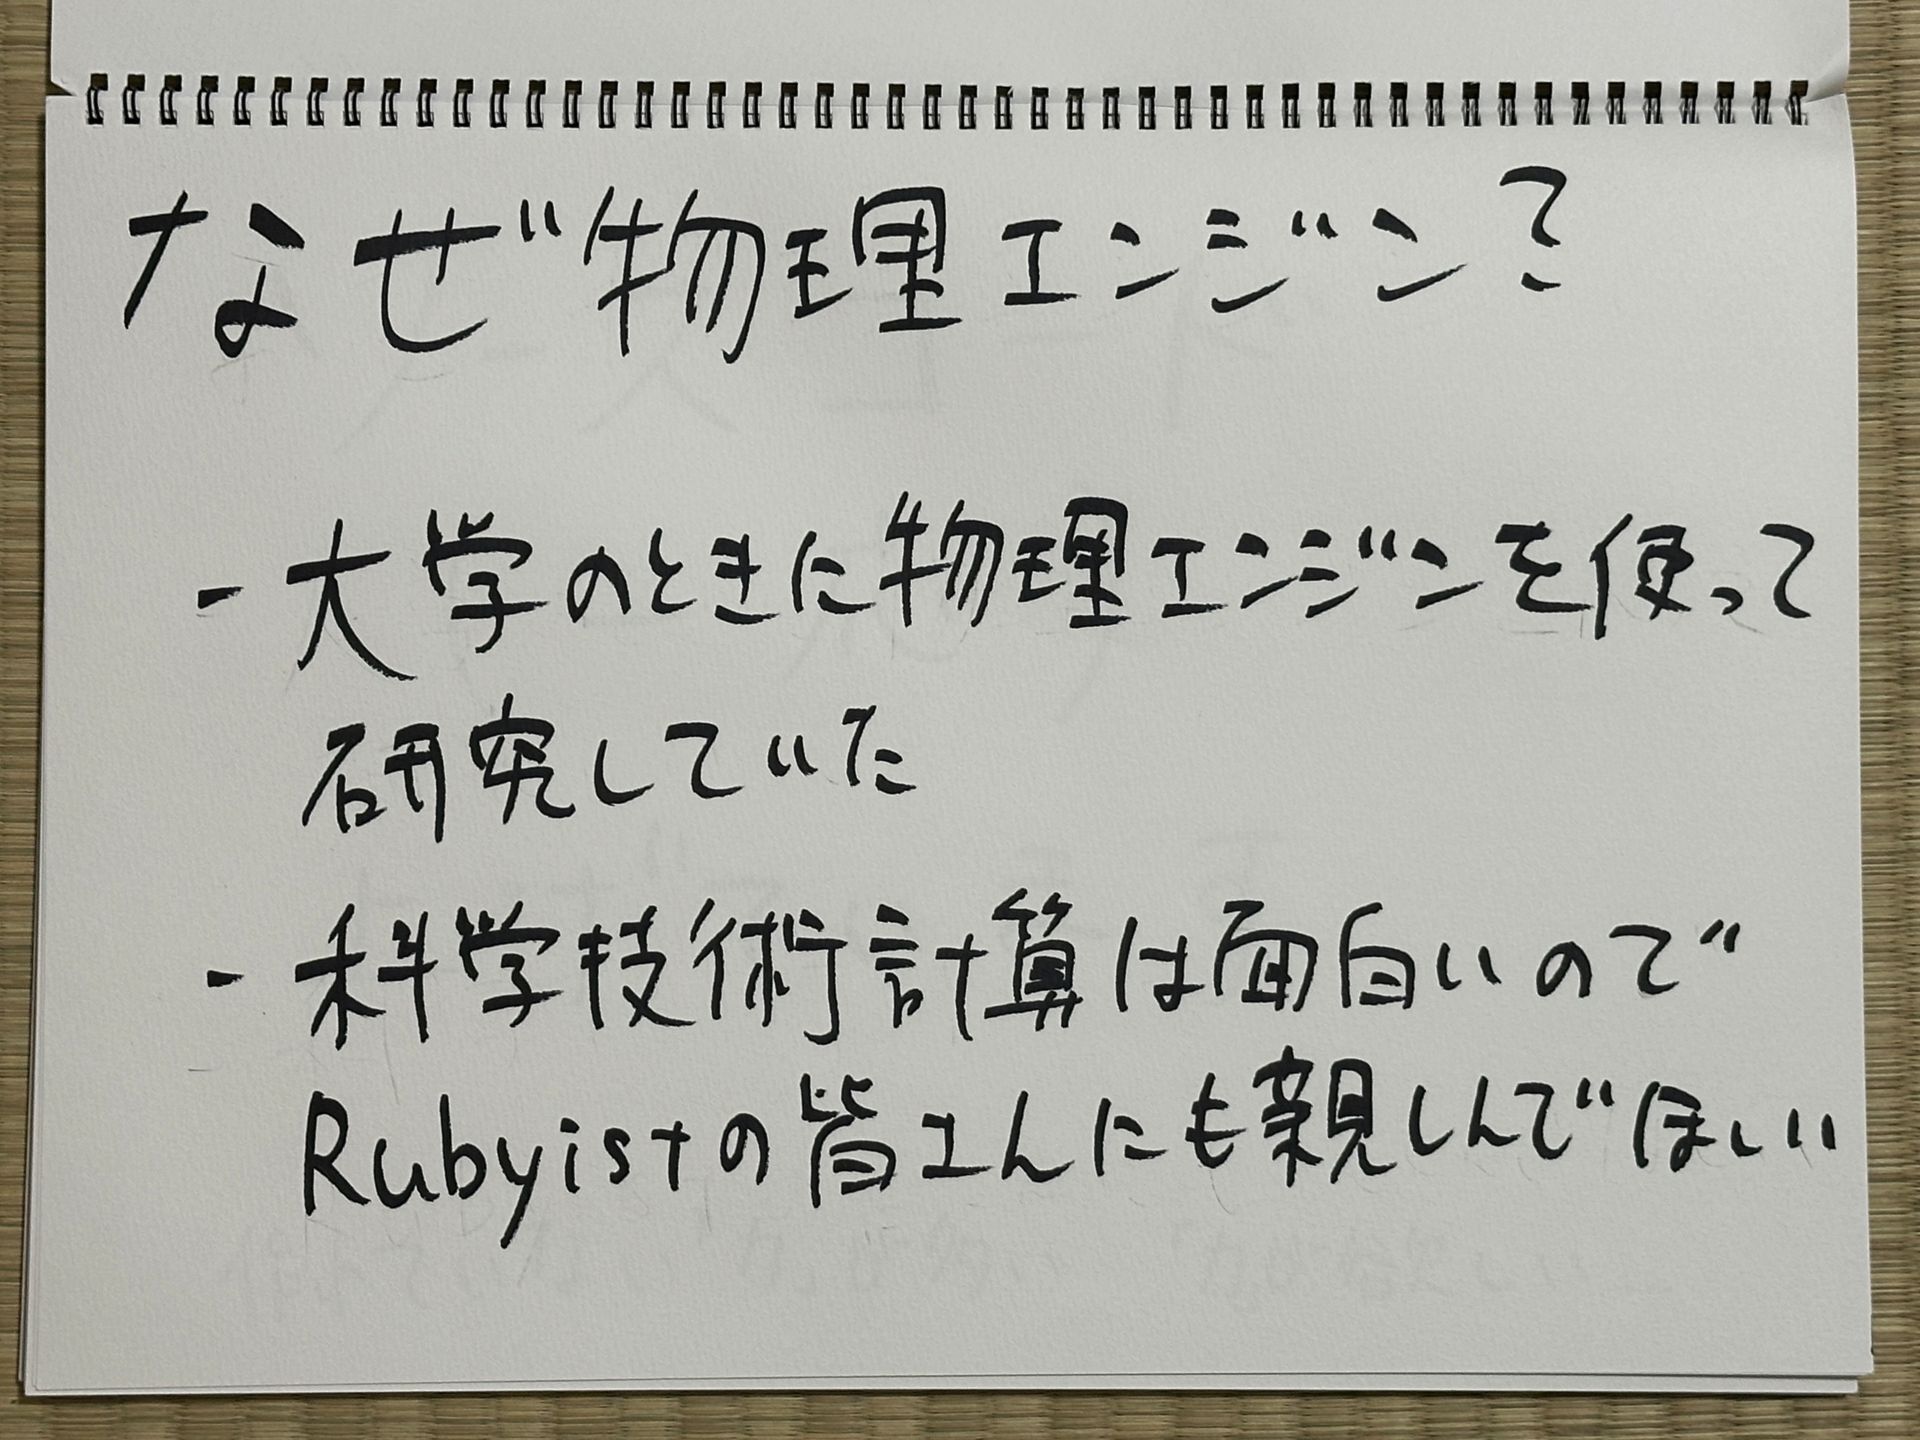 なぜ物理エンジン?
- 大学のときに物理エンジンを使って
研究していた
- 科学技術計算は面白いので
Rubyistの皆さんにも親しんでほしい